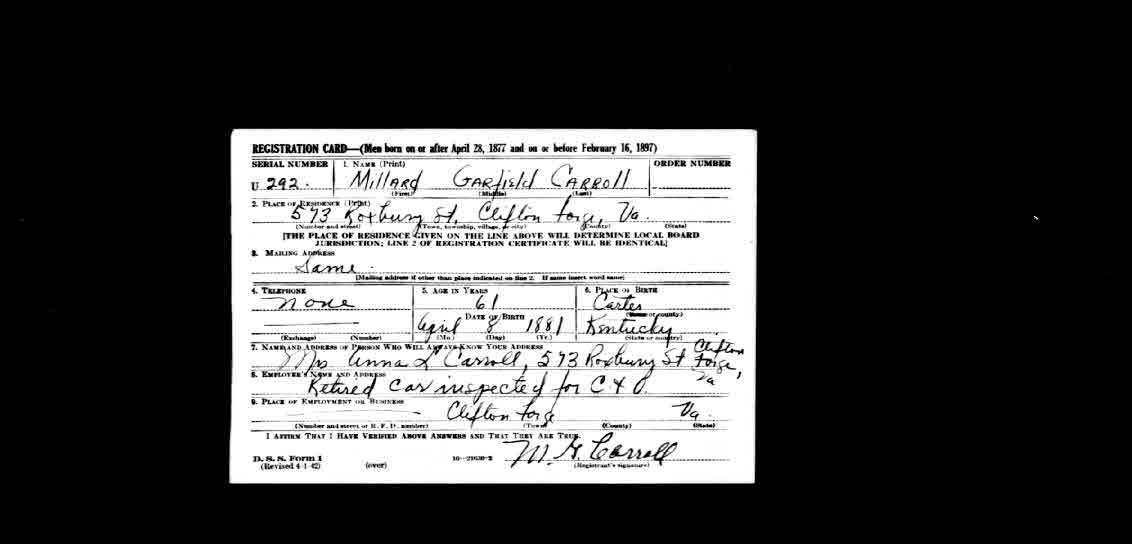 REGISTRATION CARD—(Men born on or after April 28, 1877 and on or before February 16, 1897)
SERIAL NUMBER 1. NAME (Print) ORDER NUMBER
U 292. Millard Garfield Carroll
(First) (Middle) (Last)
2. PLACE OF RESIDENCE (Print)
573 Roxbury St, Clifton Forge, Va.
(Number and street) (Town, township, village, or city) (County) (State)
[THE PLACE OF RESIDENCE GIVEN ON THE LINE ABOVE WILL DETERMINE LOCAL BOARD
JURISDICTION; LINE 2 OF REGISTRATION CERTIFICATE WILL BE IDENTICAL]
3. MAILING ADDRESS
Same.
[Mailing address if other than place indicated on line 2. If same insert word same]
4. TELEPHONE 5. AGE IN YEARS 6. PLACE OF BIRTH
None 61 Carter
DATE OF BIRTH (Town or county)
April 8 1881 Kentucky
(Exchange) (Number) (Mo.) (Day) (Yr.) (State or country)
7. NAME AND ADDRESS OF PERSON WHO WILL ALWAYS KNOW YOUR ADDRESS
Mrs Anna L Carroll, 573 Roxbury St Clifton Forge, Va
8. EMPLOYER'S NAME AND ADDRESS
Retired car inspected for C & O.
9. PLACE OF EMPLOYMENT OR BUSINESS
Clifton Forge Va.
(Number and street or R. F. D. number) (Town) (County) (State)
I AFFIRM THAT I HAVE VERIFIED ABOVE ANSWERS AND THAT THEY ARE TRUE.
M. G. Carroll
D. S. S. Form 1
(Revised 4-1-42) (over) 16—21630-2 (Registrant's signature)